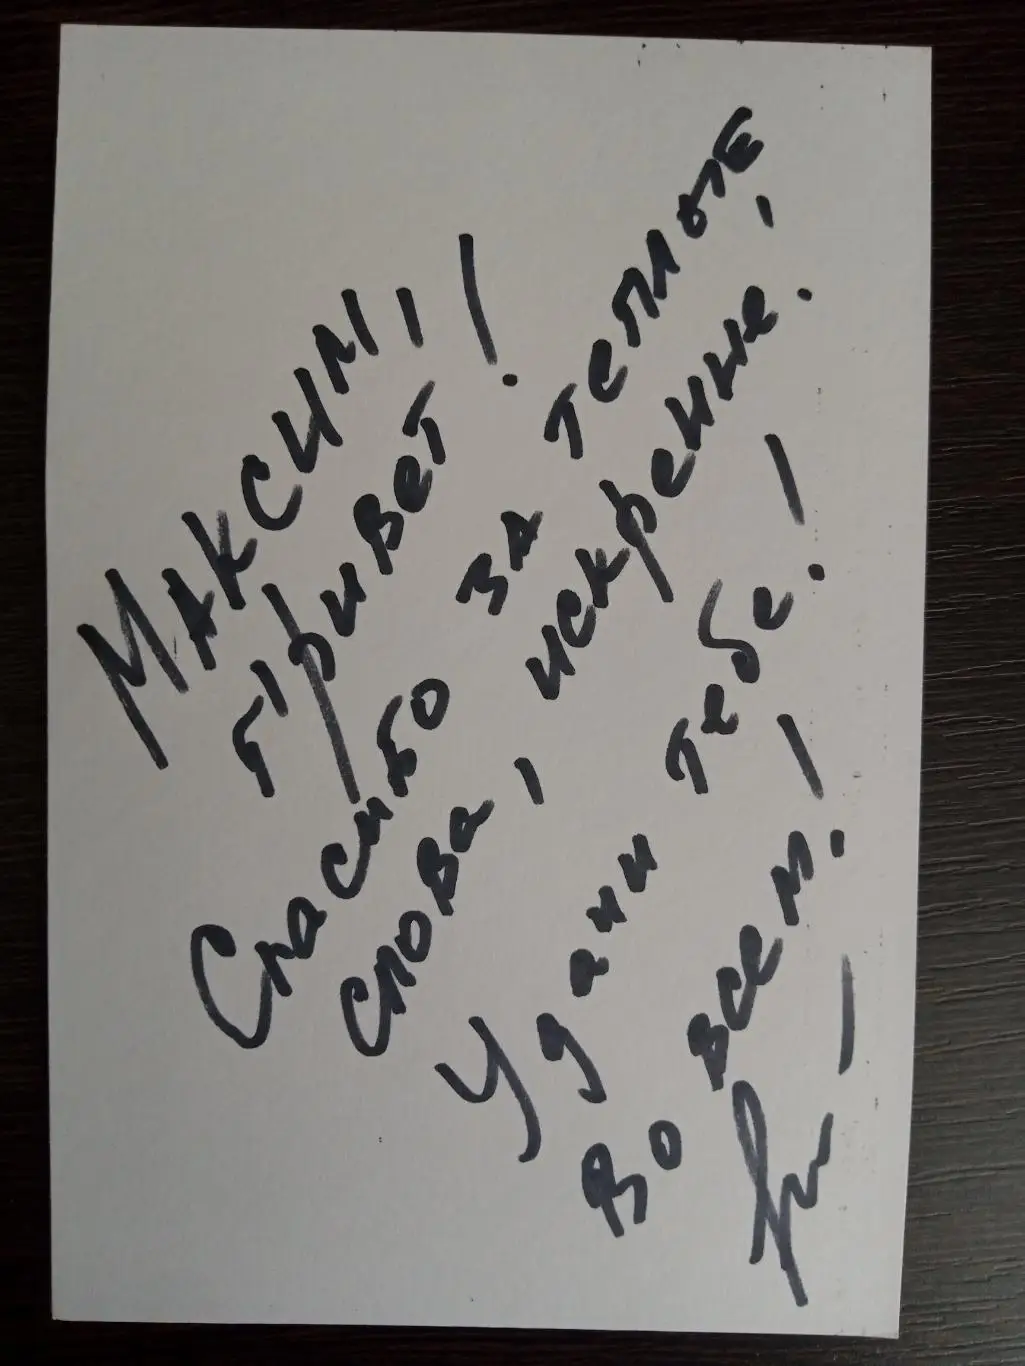 Максим,
привет!
Спасибо за теплоте
слова, искренние.
Удачи тебе!
Во всем!